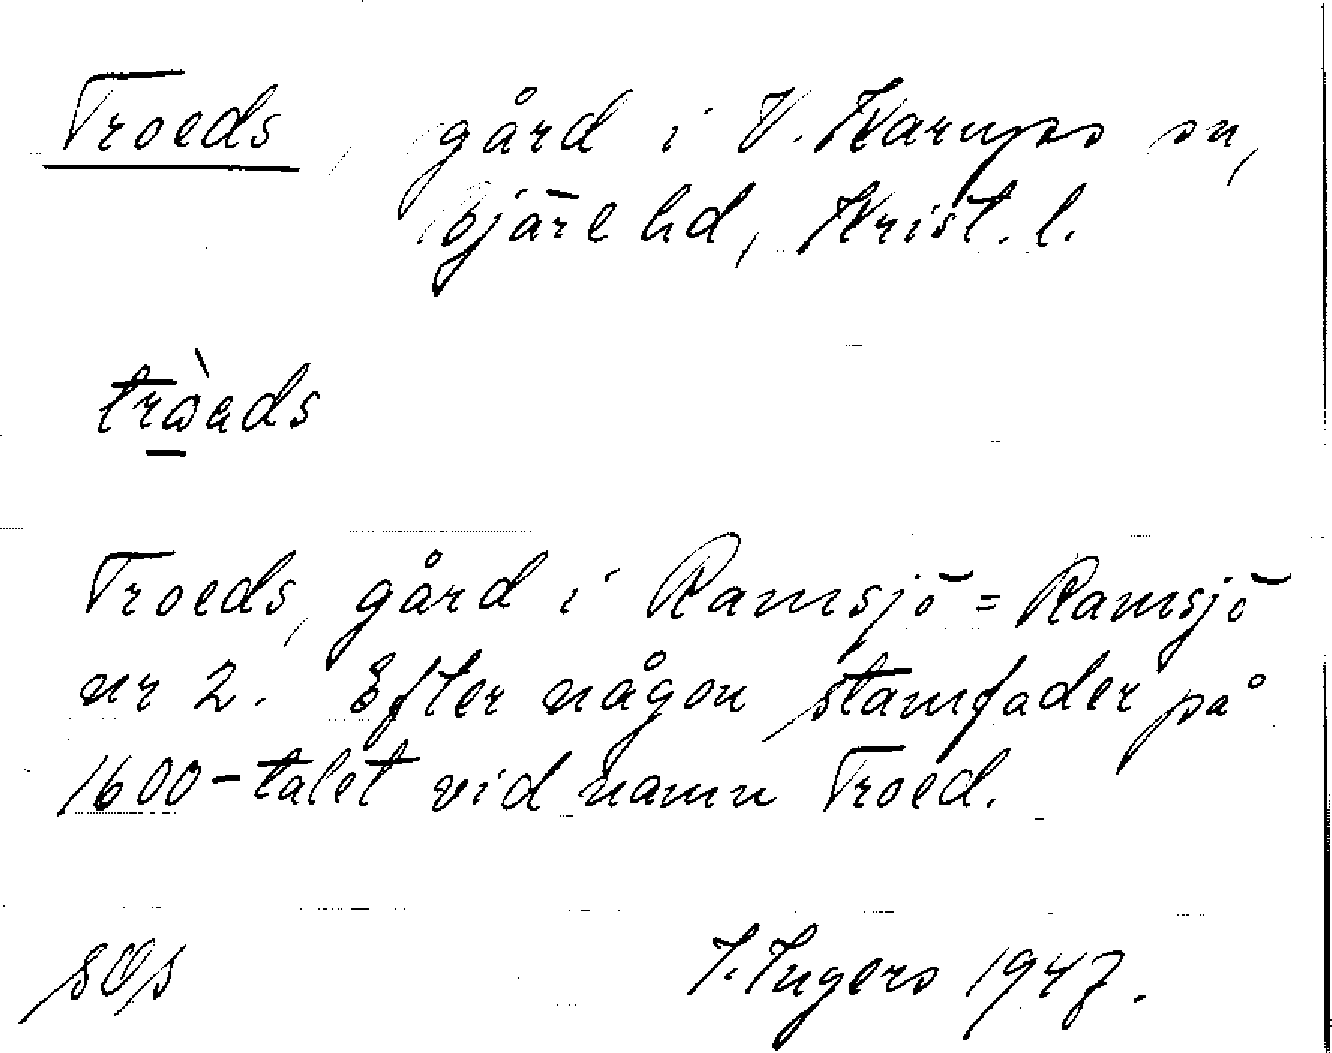 Troeds, gård i V. Karups sn,
Bjäre hd, Krist. l.
Troeds, gård i Ramsjö = Ramsjö
nr 2. Efter någon stamfader på
1600-talet vid namn Troed.
I. Ingers 1947.